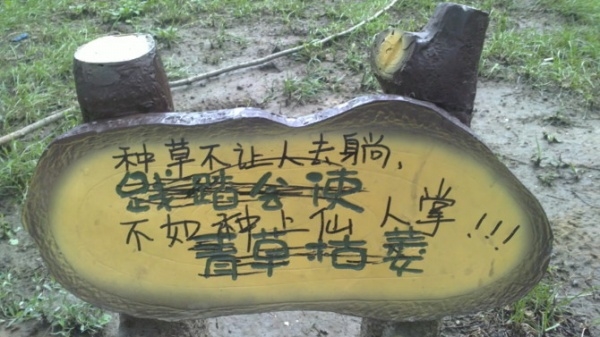 种草不让人去躺,
践踏会使
不如种上仙人掌!!!
青草枯萎